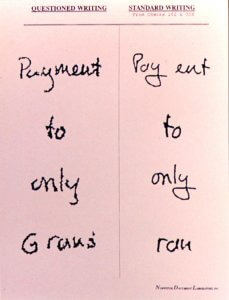 QUESTIONED WRITING STANDARD WRITING
From Checks
Payment Pay ent
to to
only only
Document Laboratory, Inc.